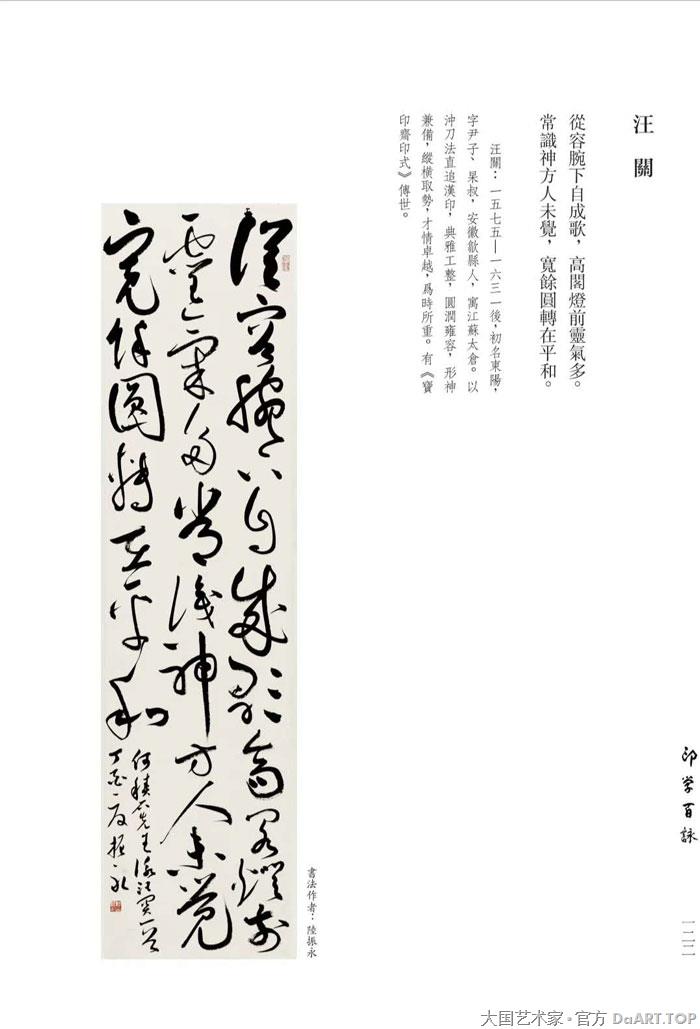 汪關
從容腕下自成歌，高閣燈前靈氣多。
常識神方人未覺，寬餘圓轉在平和。
汪關：一五七五—一六三一後，初名東陽，
字尹子、杲叔，安徽歙縣人，寓江蘇太倉。以
沖刀法直追漢印，典雅工整，圓潤雍容，形神
兼備，縱橫取勢，才情卓越，爲時所重。有《寶
印齋印式》傳世。
從容腕下自成歌高閣燈前
靈氣多常識神方人未覺
寬餘圓轉在平和
何積石先生詠汪關一首
丁酉夏振永
書法作者：陸振永
印學百詠
一二二
大国艺术家·官方 DaART.TOP